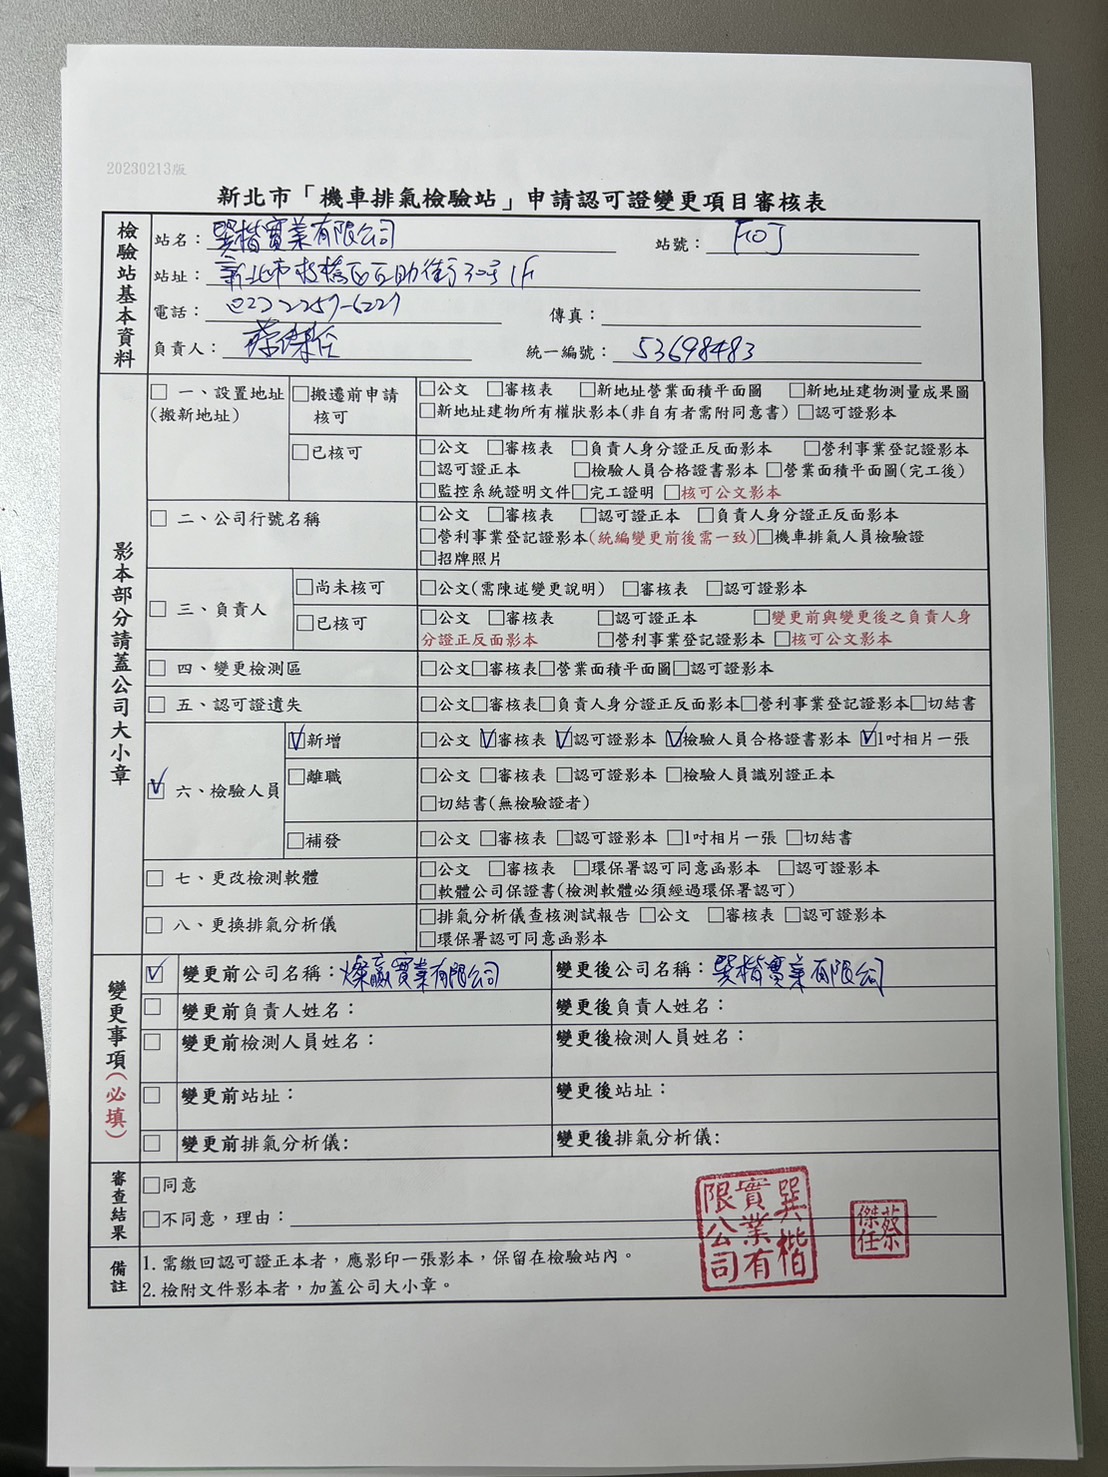 20230213版
新北市「機車排氣檢驗站」申請認可證變更項目審核表
檢驗站基本資料
站名：巽楷實業有限公司 站號：F0J
站址：新北市板橋區互助街30號1F
電話：(02) 2257-6227 傳真：
負責人：蔡傑任 統一編號：53698483
影本部分請蓋公司大小章
□一、設置地址(搬新地址)
□搬遷前申請核可
□公文 □審核表 □新地址營業面積平面圖 □新地址建物測量成果圖
□新地址建物所有權狀影本(非自有者需附同意書) □認可證影本
□已核可
□公文 □審核表 □負責人身分證正反面影本 □營利事業登記證影本
□認可證正本 □檢驗人員合格證書影本 □營業面積平面圖(完工後)
□監控系統證明文件□完工證明 □核可公文影本
□二、公司行號名稱
□公文 □審核表 □認可證正本 □負責人身分證正反面影本
□營利事業登記證影本(統編變更前後需一致)□機車排氣人員檢驗證
□招牌照片
□三、負責人
□尚未核可 □公文(需陳述變更說明) □審核表 □認可證影本
□已核可 □公文 □審核表 □認可證正本 □變更前與變更後之負責人身
分證正反面影本 □營利事業登記證影本 □核可公文影本
□四、變更檢測區 □公文□審核表□營業面積平面圖□認可證影本
□五、認可證遺失 □公文□審核表□負責人身分證正反面影本□營利事業登記證影本□切結書
☑六、檢驗人員
☑新增 □公文 ☑審核表 ☑認可證影本 ☑檢驗人員合格證書影本 ☑1吋相片一張
□離職 □公文 □審核表 □認可證影本 □檢驗人員識別證正本
□切結書(無檢驗證者)
□補發 □公文 □審核表 □認可證影本 □1吋相片一張 □切結書
□七、更改檢測軟體 □公文 □審核表 □環保署認可同意函影本 □認可證影本
□軟體公司保證書(檢測軟體必須經過環保署認可)
□八、更換排氣分析儀 □排氣分析儀查核測試報告 □公文 □審核表 □認可證影本
□環保署認可同意函影本
變更事項(必填)
☑ 變更前公司名稱：燦贏實業有限公司 變更後公司名稱：巽楷實業有限公司
□ 變更前負責人姓名： 變更後負責人姓名：
□ 變更前檢測人員姓名： 變更後檢測人員姓名：
□ 變更前站址： 變更後站址：
□ 變更前排氣分析儀: 變更後排氣分析儀:
審查結果
□同意
□不同意，理由：
巽楷實業有限公司
蔡傑任
備註
1.需繳回認可證正本者，應影印一張影本，保留在檢驗站內。
2.檢附文件影本者，加蓋公司大小章。